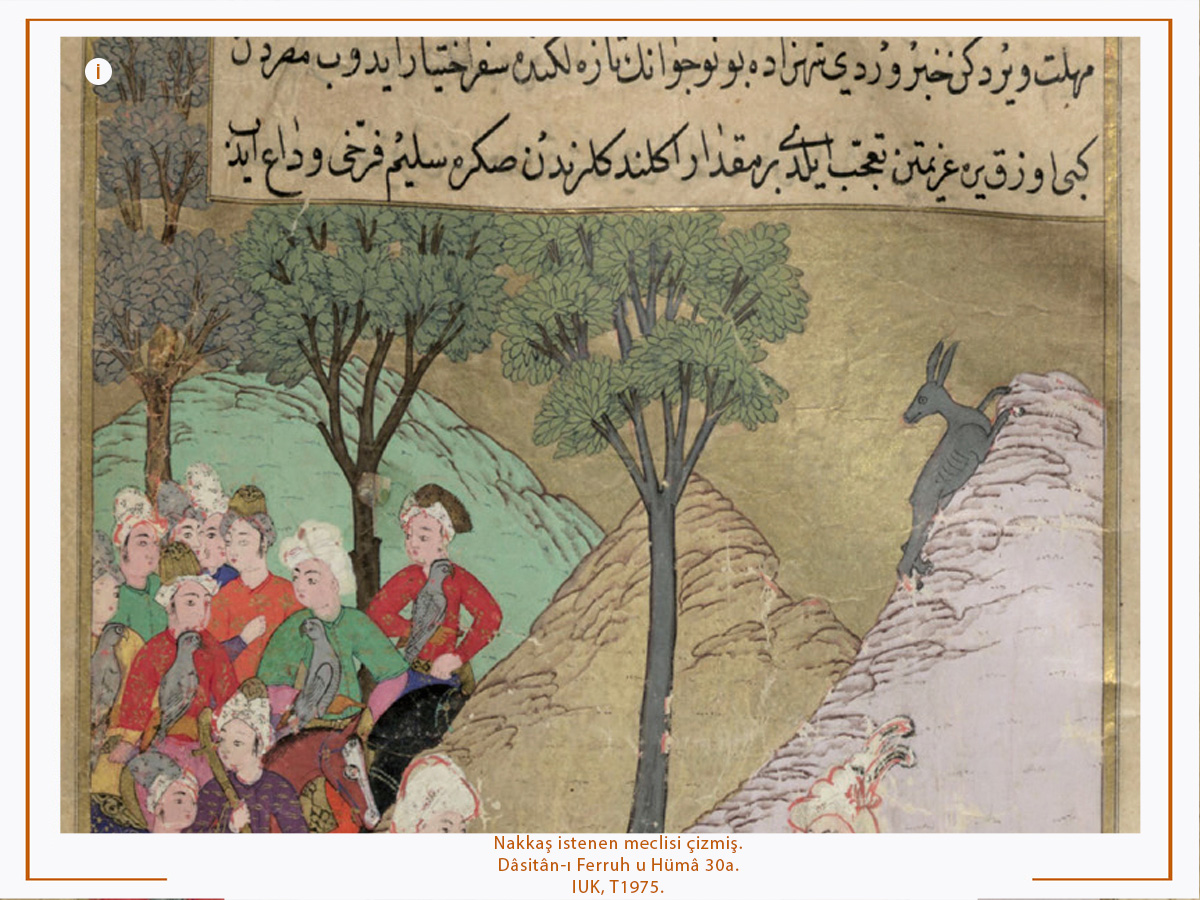 i
مهلت ويردكن خبر وردى شهزاده بو نوجوانك تازه لكنده سفر اختيار ايدوب مصردن
كبى اوزق يره عزيمتن تعجّب ايلدى بر مقدار اكلندكلرندن صكره سليم فرّخى وداع ايدب
Nakkaş istenen meclisi çizmiş.
Dâsitân-ı Ferruh u Hümâ 30a.
IUK, T1975.